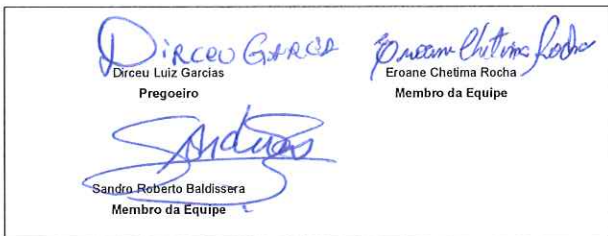 Dirceu Garcia
Dirceu Luiz Garcias
Pregoeiro
Eroane Chetima Rocha
Eroane Chetima Rocha
Membro da Equipe
Sandro Roberto Baldissera
Membro da Equipe